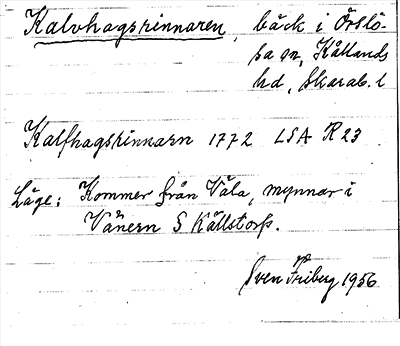 Kalvhagsrinnaren, bäck i Örslö-
sa sn, Kållands
hd, Skarab. l
Kalfhagsrinnarn 1772 LSA R 23
Läge: Kommer från Våla, mynnar i
Vänern S Källstorp.
Sven Friberg 1956